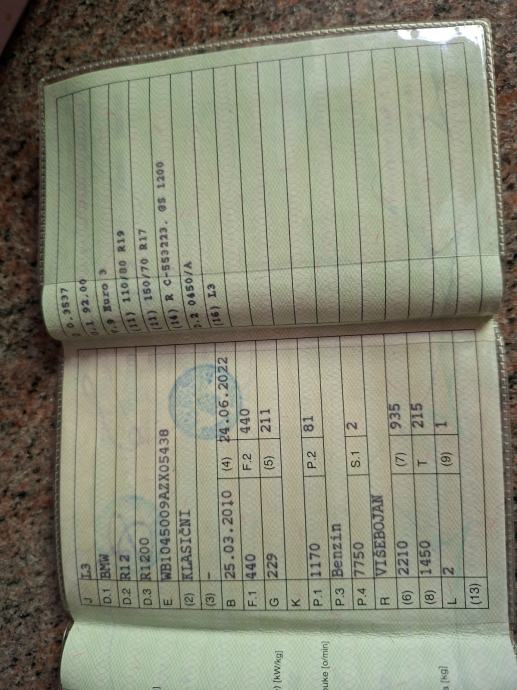 J L3
D.1 BMW
D.2 R12
D.3 R1200
E WB1045009AZX05438
(2) KLASIČNI
(3) -
B 25.03.2010 (4) 24.06.2022
F.1 440 F.2 440
G 229 (5) 211
K
P.1 1170 P.2 81
P.3 Benzin
P.4 7750 S.1 2
R VIŠEBOJAN
(6) 2210 (7) 935
(8) 1450 T 215
L 2 (9) 1
(13)
0.3537
.1 92.00
.9 Euro 3
(11) 110/80 R19
(11) 150/70 R17
(14) R C-553223. GS 1200
D.2 0450/A
(16) L3
) [kW/kg]
uke [o/min]
[kg]